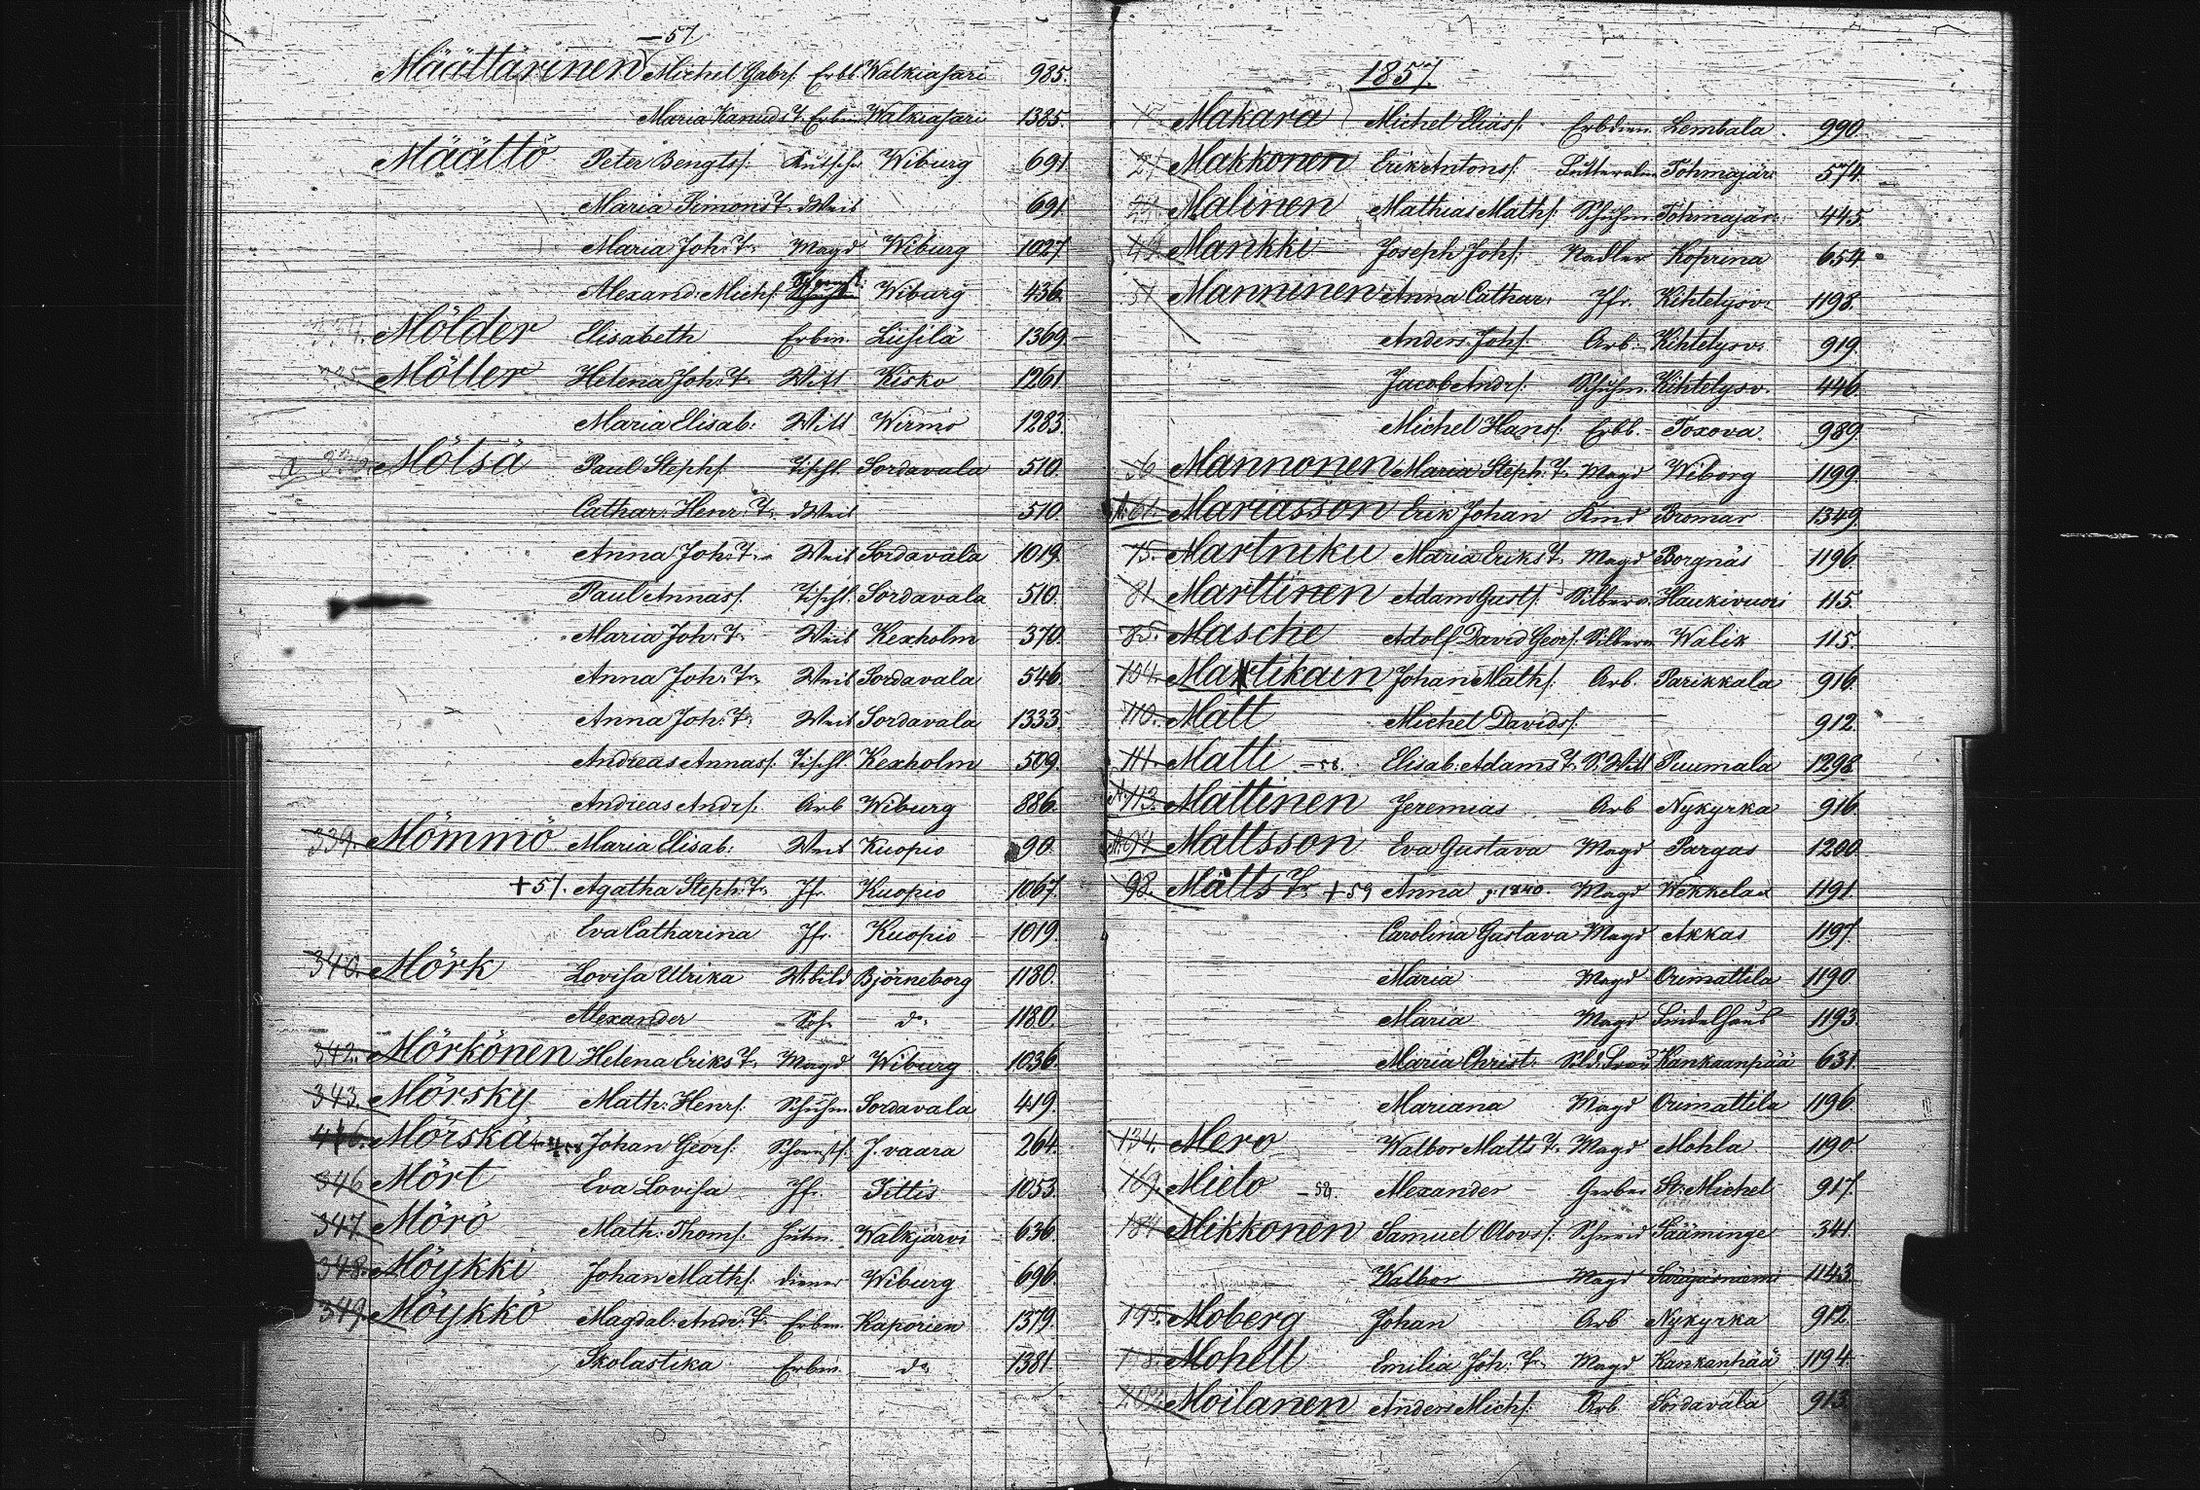 —57
Määttärinen Michel Gabrs. Erbb. Walkiasari 985.
Maria Kanuds T. Erbm. Walkiasari 1385.
Määttö Peter Bengtss. Kutscher Wiburg 691.
Maria Simons T. dWeib 691.
Maria Joh: T. Magd Wiburg 1027
Alexand: Michs. Wiburg 436.
Mölder Elisabeth Erbm. Liisilä 1369
335. Möller Helena Joh: T. Witt Kisko 1261
Maria Elisab: Witt Wirmo 1283.
Mötsä Paul Stephs. Tischl. Sordavala 510.
Cathar: Henr: T. dWeib 510.
Anna Joh: T. Weib Sordavala 1019.
Paul Annass. Tischl. Sordavala 510.
Maria Joh: T. Weib Kexholm 370.
Anna Joh: T. Weib Sordavala 546.
Anna Joh: T. Weib Sordavala 1333.
Andreas Annass. Tischl. Kexholm 509.
Andreas Andrs. Arb Wiburg 886.
339. Mömmö Maria Elisab: Weib Kuopio 90.
+57. Agatha Steph: T. Jfr. Kuopio 1067.
Eva Catharina Jfr. Kuopio 1019.
340. Mörk Lovisa Ulrika Wbild Björneborg 1180.
Alexander Soh. do 1180.
342. Mörkönen Helena Eriks T. Magd Wiburg 1036.
343. Mörsky Math: Henrs. Schuhm. Sordavala 419.
Mörskä Johan Geors: Schornsf. J. vaara 264.
346 Mört Eva Lovisa Jfr. Tittis 1053.
347. Mörö Math: Thoms. Hutm. Walkjärvi 636.
348. Möykki Johan Maths. diener Wiburg 696.
349. Möykkö Magdal: Andr: T. Erbm. Kaporien 1379.
Skolastika Erbm. do 1381.
1857.
Makara Michel Eliass. Erbdien. Lembala 990.
21. Makkonen Erik Antons. Futteralm Tohmajärv 574.
Malinen Mathias Maths. Schuhm. Tohmajärv. 445.
49. Mankki Joseph Johs. Nadler Koprina 654.
51 Manninen Anna Cathar: Jfr. Kihtelysv: 1198.
Anders Johs. Arb: Kihtelysv. 919.
Jacob Andrs. Schuhm. Kihtelysv. 446.
Michel Hanss. Erbb. Toxova. 989.
56 Mannonen Maria Steph: T. Magd Wiborg 1199.
A. 61. Mariasson Erik Johan Kind Bromar 1349.
75. Martniku Maria Eriks T. Magd Borgnäs 1196.
81. Marttinen Adam Gusts. Silbera. Haukivuori 115.
85. Masche Adolf David Geors: Silbera Walik 115.
104. Matikain Johan Maths. Arb. Parikkala 916.
110. Matt Michel Davids. 912.
111. Matti —58. Elisab: Adams T. S. Witt Puumala 1298
A. 113. Mattinen Jeremias Arb Nykyrka 916.
Mattsson Eva Gustava Magd Pargas 1200.
98. Matts Tr. +59 Anna g. 1840. Magd Wekkelax 1191.
Carolina Gustava Magd Akkas 1197.
Maria Magd Orimattila 1190.
Maria Magd Findelhaus 1193.
Maria Christ: Sold: Frau Kankaanpää 631.
Mariana Magd Orimattila 1196
134. Mero Walbor Matts T. Magd Mohla 1190.
169. Mielo —58. Alexander Gerber St: Michel 917.
184 Mikkonen Samuel Olovss: Schneid Sääminge 341.
Walbor Magd 1143.
195. Moberg Johan Arb Nykyrka 912.
Mohell Emilia Joh: Tr. Magd Kankanpää 1194.
Moilanen Anders Michs. Arb. Sordavala 913.